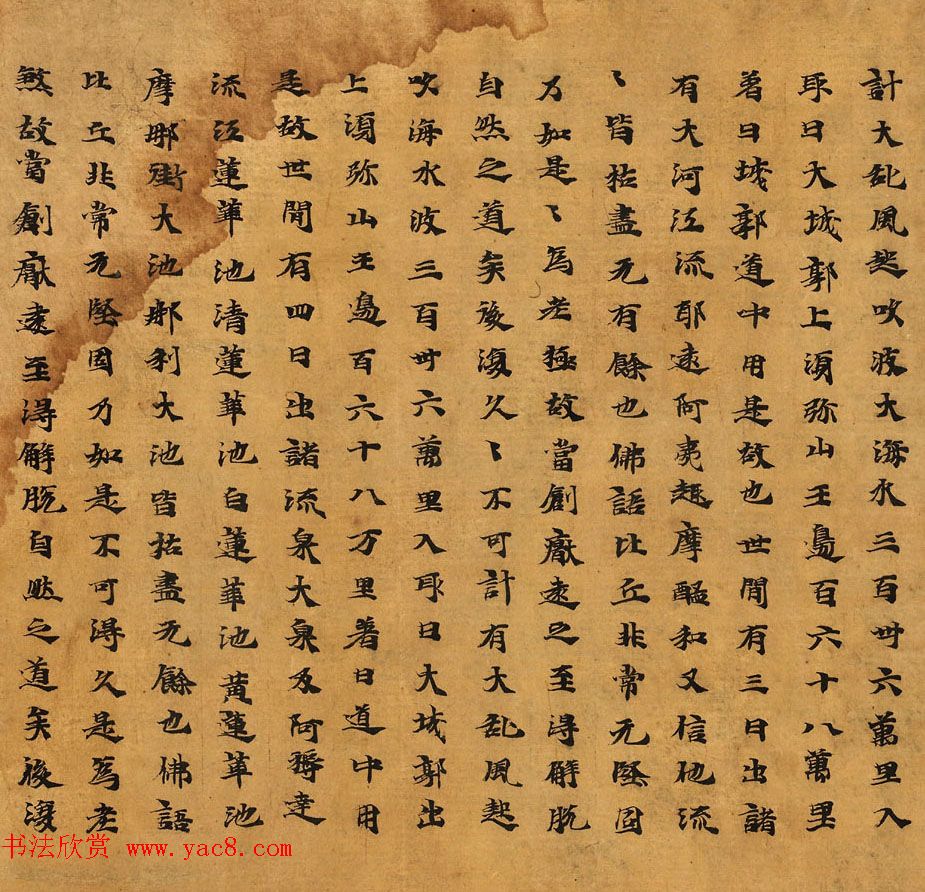 計大乱風起吹波大海水三百卅六萬里入
取日大城郭上湏弥山王邊百六十八萬里
著日城郭道中用是故也世間有三日出諸
有大河江流耶速阿夷越摩醯和又信他流
〻皆枯盡无有餘也佛語比丘非常无堅固
乃如是〻為老極故當創厭速之至得解脫
自然之道矣後復久〻不可計有大乱風起
吹海水波三百卅六萬里入取日大城郭出
上湏弥山王邊百六十八万里著日道中用
是故世間有四日出諸流泉大泉及阿耨達
流江蓮華池清蓮華池白蓮華池黃蓮華池
摩那街大池那利大池皆枯盡无餘也佛語
比丘非常无堅固乃如是不可得久是為老
煞故當創厭速至得解脫自然之道矣後復
书法欣赏 www.yac8.com